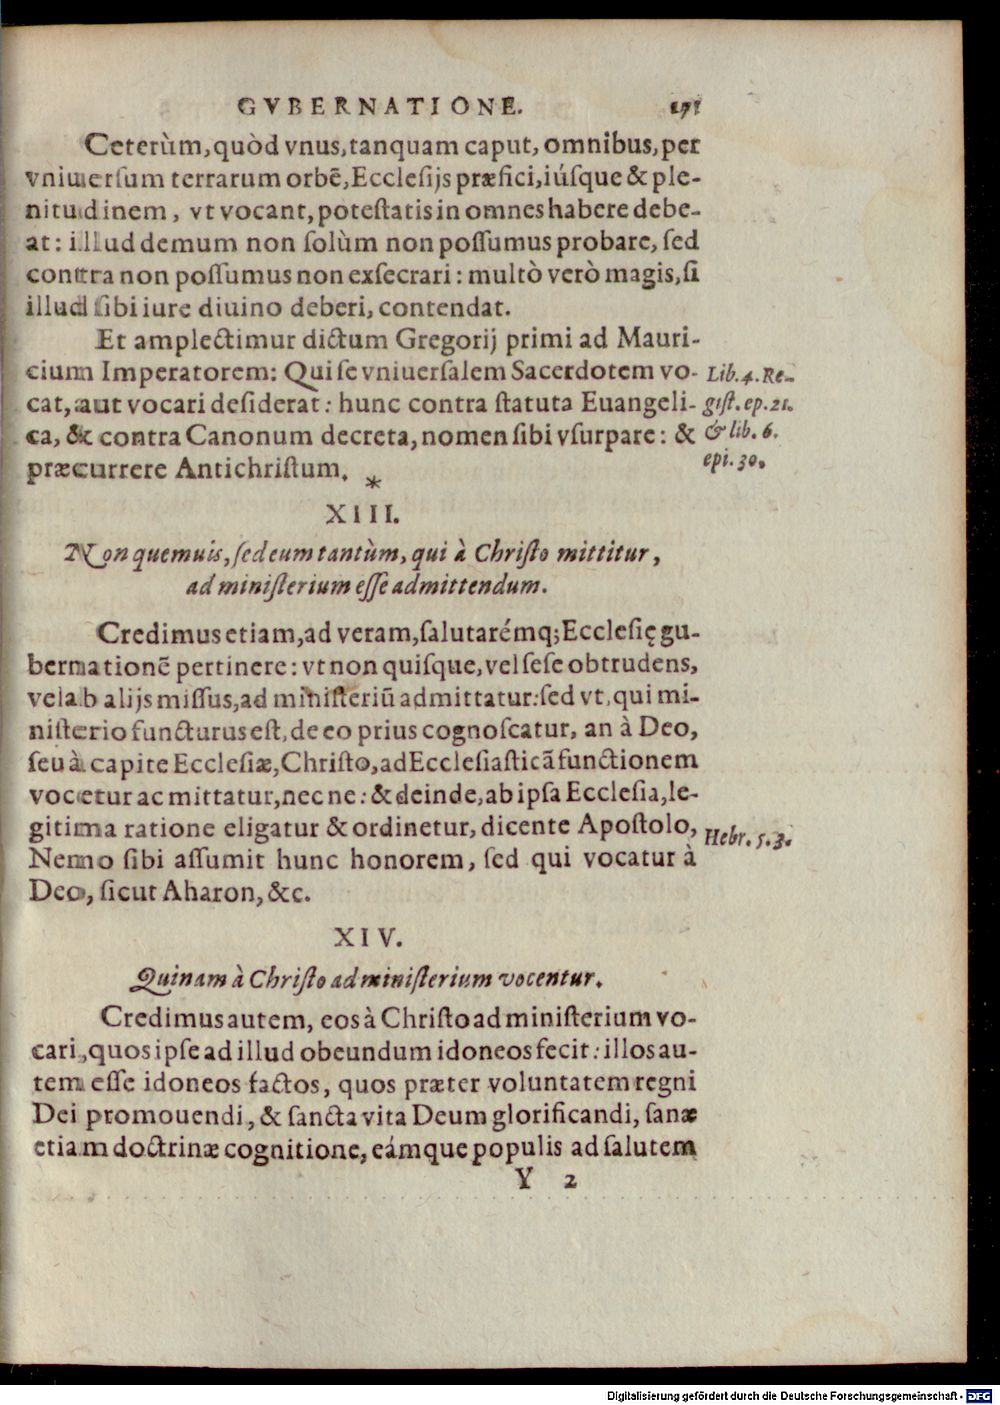 GVBERNATIONE. 171
Ceterùm, quòd vnus, tanquam caput, omnibus, per
vniuersum terrarum orbē, Ecclesijs præfici, iúsque & ple-
nitudinem, vt vocant, potestatis in omnes habere debe-
at: illud demum non solùm non possumus probare, sed
contra non possumus non exsecrari: multò verò magis, si
illud sibi iure diuino deberi, contendat.
Et amplectimur dictum Gregorij primi ad Mauri-
cium Imperatorem: Qui se vniuersalem Sacerdotem vo-
cat, aut vocari desiderat: hunc contra statuta Euangeli-
ca, & contra Canonum decreta, nomen sibi vsurpare: &
præcurrere Antichristum. *
Lib. 4. Re-
gist. ep. 21.
& lib. 6.
epi. 30.
XIII.
Non quemuis, sed eum tantùm, qui à Christo mittitur,
ad ministerium esse admittendum.
Credimus etiam, ad veram, salutarémq; Ecclesię gu-
bernationē pertinere: vt non quisque, vel sese obtrudens,
vel ab alijs missus, ad ministeriū admittatur: sed vt, qui mi-
nisterio functurus est, de eo prius cognoscatur, an à Deo,
seu à capite Ecclesiæ, Christo, ad Ecclesiasticā functionem
vocetur ac mittatur, nec ne: & deinde, ab ipsa Ecclesia, le-
gitima ratione eligatur & ordinetur, dicente Apostolo,
Nemo sibi assumit hunc honorem, sed qui vocatur à
Deo, sicut Aharon, &c.
Hebr. 5. 3.
XIV.
Quinam à Christo ad ministerium vocentur.
Credimus autem, eos à Christo ad ministerium vo-
cari, quos ipse ad illud obeundum idoneos fecit: illos au-
tem esse idoneos factos, quos præter voluntatem regni
Dei promouendi, & sancta vita Deum glorificandi, sanæ
etiam doctrinæ cognitione, eámque populis ad salutem
Y 2
Digitalisierung gefördert durch die Deutsche Forschungsgemeinschaft - DFG